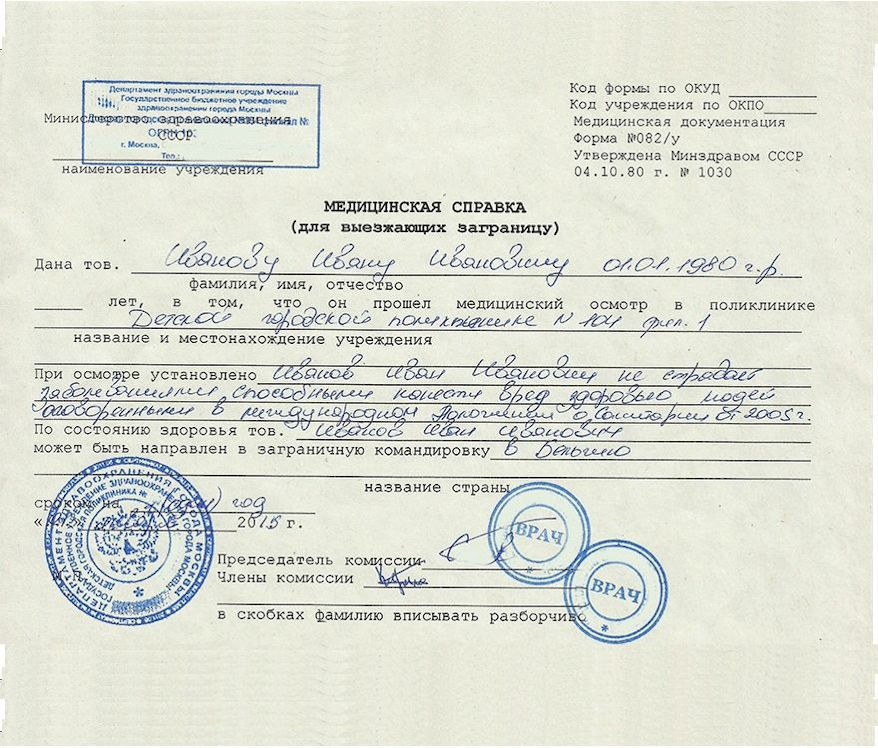 Департамент здравоохранения города Москвы
Государственное бюджетное учреждение
здравоохранения города Москвы
Министерство здравоохранения
СССР
г. Москва,
Тел.:
наименование учреждения
Код формы по ОКУД
Код учреждения по ОКПО
Медицинская документация
Форма №082/у
Утверждена Минздравом СССР
04.10.80 г. № 1030
МЕДИЦИНСКАЯ СПРАВКА
(для выезжающих заграницу)
Дана тов. Иванову Ивану Ивановичу 01.01.1980 г.р.
фамилия, имя, отчество
лет, в том, что он прошел медицинский осмотр в поликлинике
Детской городской поликлинике N 104 фил. 1
название и местонахождение учреждения
При осмотре установлено Иванов Иван Иванович не страдает
заболеваниями способными нанести вред здоровью людей
оговоренными в международном Положении о Санитарии от 2005 г.
По состоянию здоровья тов. Иванов Иван Иванович
может быть направлен в заграничную командировку в Бельгию
название страны
сроком на 1 год
2015 г.
Председатель комиссии
Члены комиссии
в скобках фамилию вписывать разборчиво
ВРАЧ
ВРАЧ
ДЕПАРТАМЕНТ ЗДРАВООХРАНЕНИЯ ГОРОДА МОСКВЫ
ДЕТСКАЯ ГОРОДСКАЯ ПОЛИКЛИНИКА №